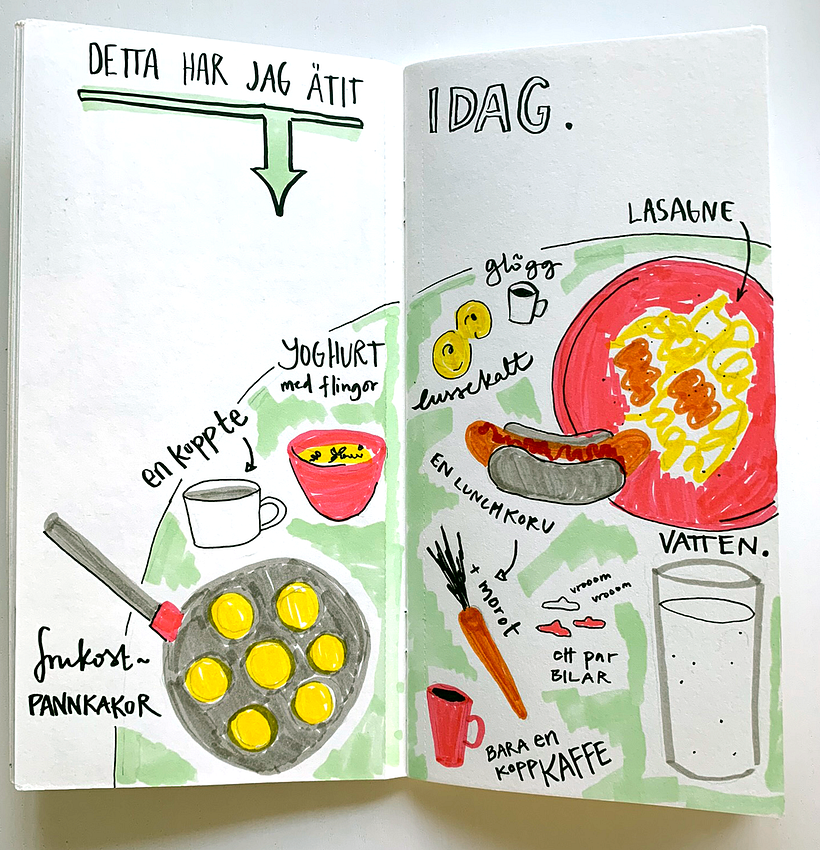 DETTA HAR JAG ÄTIT
IDAG.
YOGHURT
med flingor
en kopp te
frukost~
PANNKAKOR
LASAGNE
glögg
lussekatt
EN LUNCHKORV
+ morot
vrooom
vrooom
ett par
BILAR
BARA en
kopp KAFFE
VATTEN.